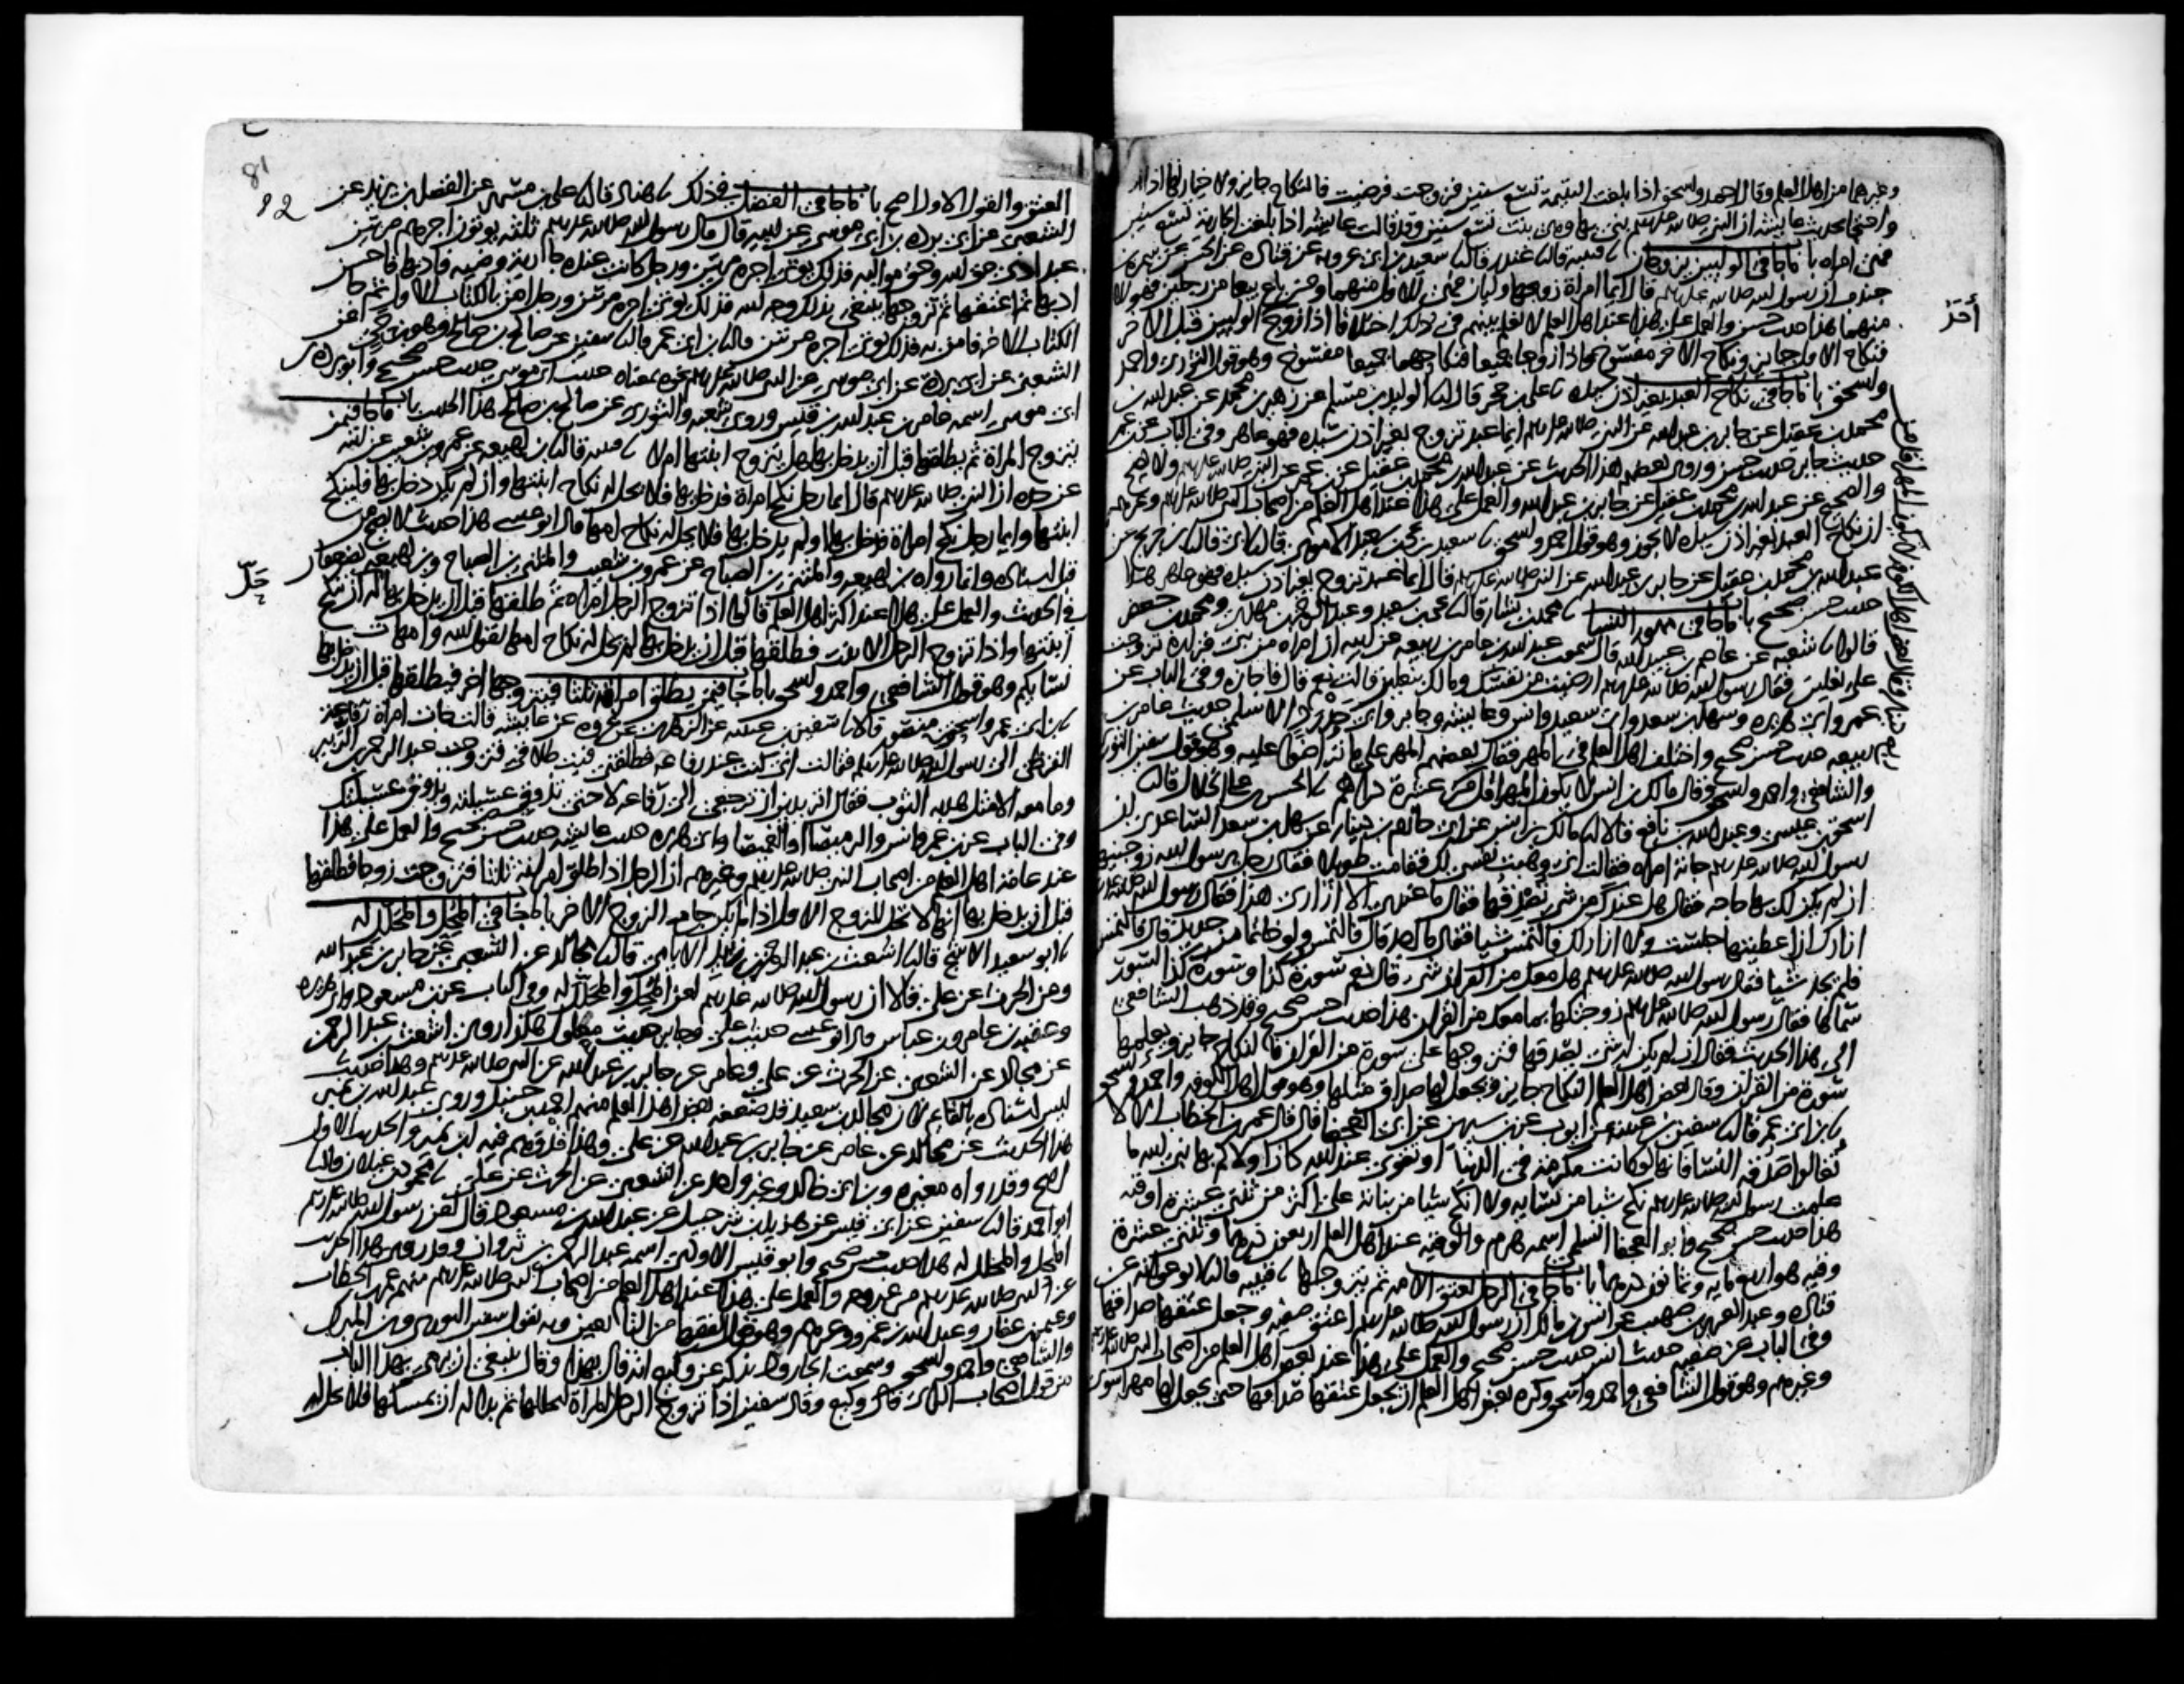 وغيرهما من اهل العلم وقال احمد واسحق اذا بلغت اليتيمة تسع سنين فزوجت فرضيت فالنكاح جايز ولا خيار لها اذا ادركت
واحتجا بحديث عايشة ان النبي صلى الله عليه وسلم بنى بها وهي بنت تسع سنين وقد قالت عايشة اذا بلغت الجارية تسع سنين
فهي امراة باب ما جا في الوليين يزوجان نا قتيبة قال نا غندر قال نا سعيد بن ابي عروبة عن قتادة عن الحسن عن سمرة بن
جندب ان رسول الله صلى الله عليه وسلم قال ايما امراة زوجها وليان فهي للاول منهما ومن باع بيعا من رجلين فهو للاول
منهما هذا حديث حسن والعمل على هذا عند اهل العلم لا نعلم بينهم في ذلك اختلافا اذا زوج احد الوليين قبل الاخر
فنكاح الاول جايز ونكاح الاخر مفسوخ واذا زوجا جميعا فنكاحهما جميعا مفسوخ وهو قول الثوري واحمد
واسحق باب ما جا في نكاح العبد بغير اذن سيده نا علي بن حجر قال نا الوليد بن مسلم عن زهير بن محمد عن عبد الله بن
محمد بن عقيل عن جابر بن عبد الله عن النبي صلى الله عليه وسلم ايما عبد تزوج بغير اذن سيده فهو عاهر وفي الباب عن بن عمر
حديث جابر حديث حسن وروى بعضهم هذا الحديث عن عبد الله بن محمد بن عقيل عن بن عمر عن النبي صلى الله عليه وسلم ولا يصح
والصحيح عن عبد الله بن محمد بن عقيل عن جابر بن عبد الله والعمل على هذا عند اهل العلم من اصحاب النبي صلى الله عليه وسلم وغيرهم
ان نكاح العبد بغير اذن سيده لا يجوز وهو قول احمد واسحق نا سعيد بن يحيى بن سعيد الاموي قال نا ابي قال نا بن جريج عن
عبد الله بن محمد بن عقيل عن جابر بن عبد الله عن النبي صلى الله عليه وسلم قال ايما عبد تزوج بغير اذن سيده فهو عاهر هذا
حديث حسن صحيح باب ما جا في مهور النسا نا محمد بن بشار قال نا يحيى بن سعيد وعبد الرحمن بن مهدي ومحمد بن جعفر
قالوا نا شعبة عن عاصم بن عبيد الله قال سمعت عبد الله بن عامر بن ربيعة عن ابيه ان امراة من بني فزارة تزوجت
على نعلين فقال رسول الله صلى الله عليه وسلم ارضيت من نفسك ومالك بنعلين قالت نعم قال فاجازه وفي الباب عن
عمر وابي هريرة وسهل بن سعد وابي سعيد وانس وعايشة وجابر وابي حدرد الاسلمي حديث عامر بن
ربيعة حديث حسن صحيح واختلف اهل العلم في المهر فقال بعضهم المهر على ما تراضوا عليه وهو قول سفين الثوري
والشافعي واحمد واسحق وقال مالك بن انس لا يكون المهر اقل من عشرة دراهم نا الحسن بن علي الخلال قال نا
اسحق بن عيسى وعبد الله بن نافع قالا نا مالك بن انس عن ابي حازم بن دينار عن سهل بن سعد الساعدي ان
رسول الله صلى الله عليه وسلم جاته امراة فقالت اني وهبت نفسي لك فقامت طويلا فقال رجل يرسول الله زوجنيها
ان لم يكن لك بها حاجة فقال هل عندك من شي تصدقها فقال ما عندي الا ازاري هذا فقال رسول الله صلى الله عليه وسلم
ازارك ان اعطيتها جلست ولا ازار لك فالتمس شيا فقال ما اجد قال فالتمس ولو خاتما من حديد قال فالتمس
فلم يجد شيا فقال رسول الله صلى الله عليه وسلم هل معك من القران شي قال نعم سورة كذا وسورة كذا لسور
سماها فقال رسول الله صلى الله عليه وسلم زوجتكها بما معك من القران هذا حديث حسن صحيح وقد ذهب الشافعي
الى هذا الحديث فقال ان لم يكن له شي يصدقها فتزوجها على سورة من القران فالنكاح جايز ويعلمها
سورة من القران وقال بعض اهل العلم النكاح جايز ويجعل لها صداق مثلها وهو قول اهل الكوفة واحمد واسحق
نا بن ابي عمر قال نا سفين بن عيينة عن ايوب عن بن سيرين عن ابي العجفا قال قال عمر بن الخطاب الا لا
تغالوا صدقة النسا فانها لو كانت مكرمة في الدنيا او تقوى عند الله كان اولاكم بها نبي الله ما
علمت رسول الله صلى الله عليه وسلم نكح شيا من نسايه ولا انكح شيا من بناته على اكثر من ثنتي عشرة اوقية
هذا حديث حسن صحيح وابو العجفا السلمي اسمه هرم والوقية عند اهل العلم اربعون درهما وثنتي عشرة
وقية هو اربع ماية وثمانون درهما باب ما جا في الرجل يعتق الامة ثم يتزوجها نا قتيبة قال نا ابو عوانة عن
قتادة وعبد العزيز بن صهيب عن انس بن مالك ان رسول الله صلى الله عليه وسلم اعتق صفية وجعل عتقها صداقها
وفي الباب عن صفية حديث انس حديث حسن صحيح والعمل على هذا عند بعض اهل العلم من اصحاب النبي صلى الله عليه وسلم
وغيرهم وهو قول الشافعي واحمد واسحق وكره بعض اهل العلم ان يجعل عتقها صداقها حتى يجعل لها مهرا سوى
81
82
العتق والقول الاول اصح باب ما جا في الفضل في ذلك نا هناد قال نا علي بن مسهر عن الفضل بن يزيد عن
الشعبي عن ابي بردة بن ابي موسى عن ابيه قال قال رسول الله صلى الله عليه وسلم ثلثة يوتون اجرهم مرتين
عبد ادى حق الله وحق مواليه فذلك يوتى اجره مرتين ورجل كانت عنده جارية وضية فادبها فاحسن
ادبها ثم اعتقها ثم تزوجها يبتغي بذلك وجه الله فذلك يوتى اجره مرتين ورجل امن بالكتاب الاول ثم جا
الكتاب الاخر فامن به فذلك يوتى اجره مرتين قال نا بن ابي عمر قال نا سفين عن صالح بن صالح وهو بن حي عن
الشعبي عن ابي بردة عن ابي موسى عن النبي صلى الله عليه وسلم نحوه بمعناه حديث ابي موسى حديث حسن صحيح وابو بردة بن
ابي موسى اسمه عامر بن عبد الله بن قيس وروى شعبة والثوري عن صالح بن صالح هذا الحديث باب ما جا فيمن
يتزوج المراة ثم يطلقها قبل ان يدخل بها هل يتزوج ابنتها ام لا نا قتيبة قال نا بن لهيعة عن عمرو بن شعيب عن ابيه
عن جده ان النبي صلى الله عليه وسلم قال ايما رجل نكح امراة فدخل بها فلا يحل له نكاح ابنتها وان لم يكن دخل بها فلينكح
ابنتها وايما رجل نكح امراة فدخل بها او لم يدخل بها فلا يحل له نكاح امها قال ابو عيسى هذا حديث لا يصح من
قبل اسناده وانما رواه بن لهيعة والمثنى بن الصباح عن عمرو بن شعيب والمثنى بن الصباح وبن لهيعة يضعفان
في الحديث والعمل على هذا عند اكثر اهل العلم قالوا اذا تزوج الرجل امراة ثم طلقها قبل ان يدخل بها له ان ينكح
ابنتها واذا تزوج الرجل الابنة فطلقها قبل ان يدخل بها لم يحل له نكاح امها لقول الله وامهات
نسايكم وهو قول الشافعي واحمد واسحق باب ما جا فيمن يطلق امراته ثلثا فيتزوجها اخر فيطلقها قبل ان يدخل بها
نا بن ابي عمر واسحق بن منصور قالا نا سفين بن عيينة عن الزهري عن عروة عن عايشة قالت جات امراة رفاعة
القرظي الى رسول الله صلى الله عليه وسلم فقالت اني كنت عند رفاعة فطلقني فبت طلاقي فتزوجت عبد الرحمن بن الزبير
وما معه الا مثل هدبة الثوب فقال اتريدين ان ترجعي الى رفاعة لا حتى تذوقي عسيلته ويذوق عسيلتك
وفي الباب عن بن عمر وانس والرميصا او الغميصا وابي هريرة حديث عايشة حديث حسن صحيح والعمل على هذا
عند عامة اهل العلم من اصحاب النبي صلى الله عليه وسلم وغيرهم ان الرجل اذا طلق امراته ثلثا فتزوجت زوجا فطلقها
قبل ان يدخل بها انها لا تحل للزوج الاول اذا لم يكن جامع الزوج الاخر باب ما جا في المحل والمحلل له
نا ابو سعيد الاشج قال نا اشعث بن عبد الرحمن بن زبيد الايامي قال نا مجالد عن الشعبي عن جابر بن عبد الله
وعن الحرث عن علي قالا ان رسول الله صلى الله عليه وسلم لعن المحل والمحلل له وفي الباب عن بن مسعود وابي هريرة
وعقبة بن عامر وبن عباس قال ابو عيسى حديث علي وجابر حديث معلول هكذا روى اشعث بن عبد الرحمن
عن مجالد عن الشعبي عن الحرث عن علي وعامر عن جابر بن عبد الله عن النبي صلى الله عليه وسلم وهذا حديث
ليس اسناده بالقايم لان مجالد بن سعيد قد ضعفه بعض اهل العلم منهم احمد بن حنبل وروى عبد الله بن نمير
هذا الحديث عن مجالد عن عامر عن جابر بن عبد الله عن علي وهذا قد وهم فيه ابن نمير والحديث الاول
اصح وقد رواه مغيرة وبن ابي خالد وغير واحد عن الشعبي عن الحرث عن علي نا محمود بن غيلان قال نا
ابو احمد قال نا سفين عن ابي قيس عن هزيل بن شرحبيل عن عبد الله بن مسعود قال لعن رسول الله صلى الله عليه وسلم
المحل والمحلل له هذا حديث حسن صحيح وابو قيس الاودي اسمه عبد الرحمن بن ثروان وقد روي هذا الحديث
عن النبي صلى الله عليه وسلم من غير وجه والعمل على هذا عند اهل العلم من اصحاب النبي صلى الله عليه وسلم منهم عمر بن الخطاب
وعثمن بن عفان وعبد الله بن عمرو وغيرهم وهو قول الفقها من التابعين وبه يقول سفين الثوري وبن المبارك
والشافعي واحمد واسحق وسمعت الجارود يذكر عن وكيع انه قال بهذا وقال ينبغي ان يرمى بهذا الباب
من قول اصحاب الراي قال وكيع وقال سفين اذا تزوج الرجل المراة ليحللها ثم بدا له ان يمسكها فلا يحل له